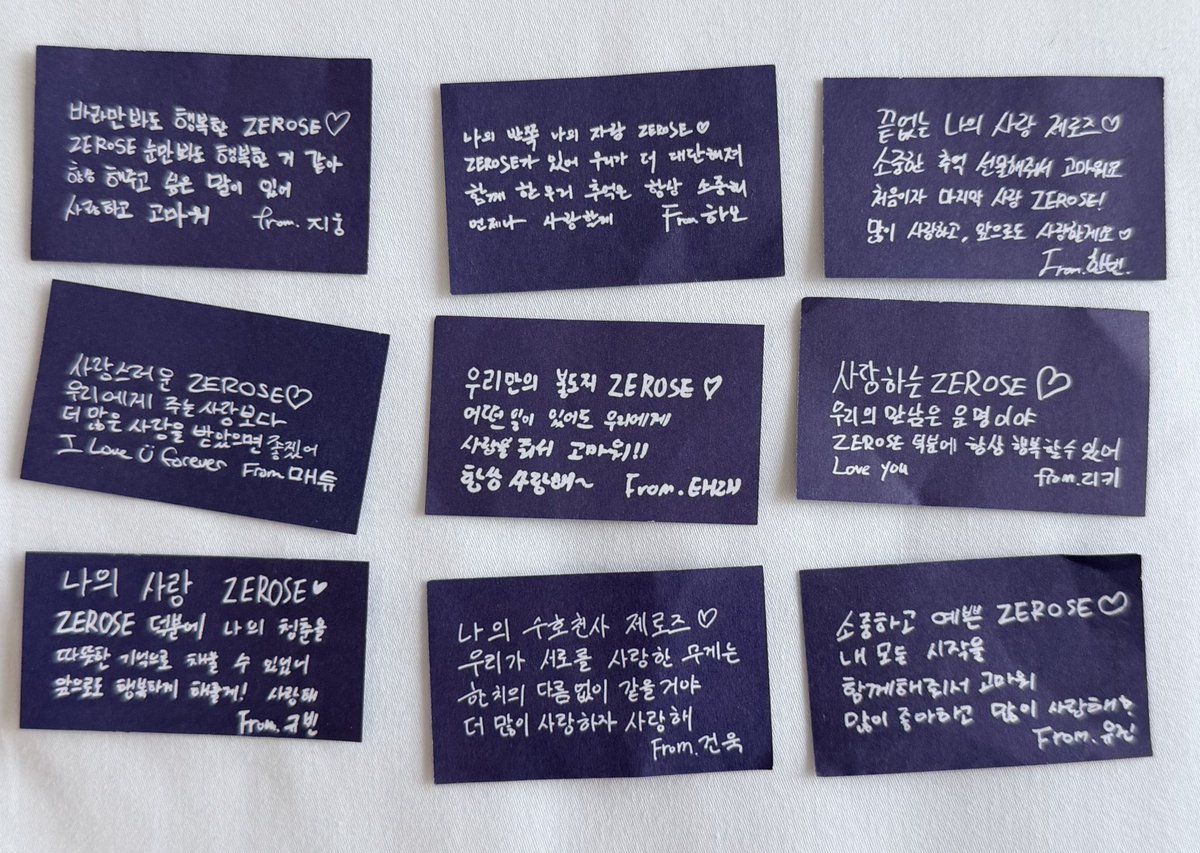 바라만 봐도 행복한 ZEROSE♡
ZEROSE 눈만봐도 행복한 거 같아
항상 해주고 싶은 말이 있어
사랑하고 고마워 from. 지웅
나의 반쪽 나의 자랑 ZEROSE♡
ZEROSE가 있어 우리가 더 대단해져
함께 한 우리 추억은 항상 소중해
언제나 사랑할게 From. 하오
끝없는 나의 사랑 제로즈♡
소중한 추억 선물해줘서 고마워요
처음이자 마지막 사랑 ZEROSE!
많이 사랑하고, 앞으로도 사랑할게요♡
From. 한빈.
사랑스러운 ZEROSE♡
우리에게 주는 사랑보다
더 많은 사랑을 받았으면 좋겠어
I Love U forever From 매튜
우리만의 ZEROSE♡
어떤 일이 있어도 우리에게
사랑을 줘서 고마워!!
항상 사랑해~ From. 태래
사랑하는 ZEROSE♡
우리의 만남은 운명이야
ZEROSE 덕분에 항상 행복할 수 있어
Love you from. 리키
나의 사랑 ZEROSE♥
ZEROSE 덕분에 나의 청춘을
따뜻한 기억으로 채울 수 있었어
앞으로도 행복하게 해줄게! 사랑해
From. 규빈
나의 수호천사 제로즈♡
우리가 서로를 사랑한 무게는
한치의 다름없이 같을거야
더 많이 사랑하자 사랑해
From. 건욱
소중하고 예쁜 ZEROSE♡
내 모든 시작을
함께해줘서 고마워
많이 좋아하고 많이 사랑해
From. 유진